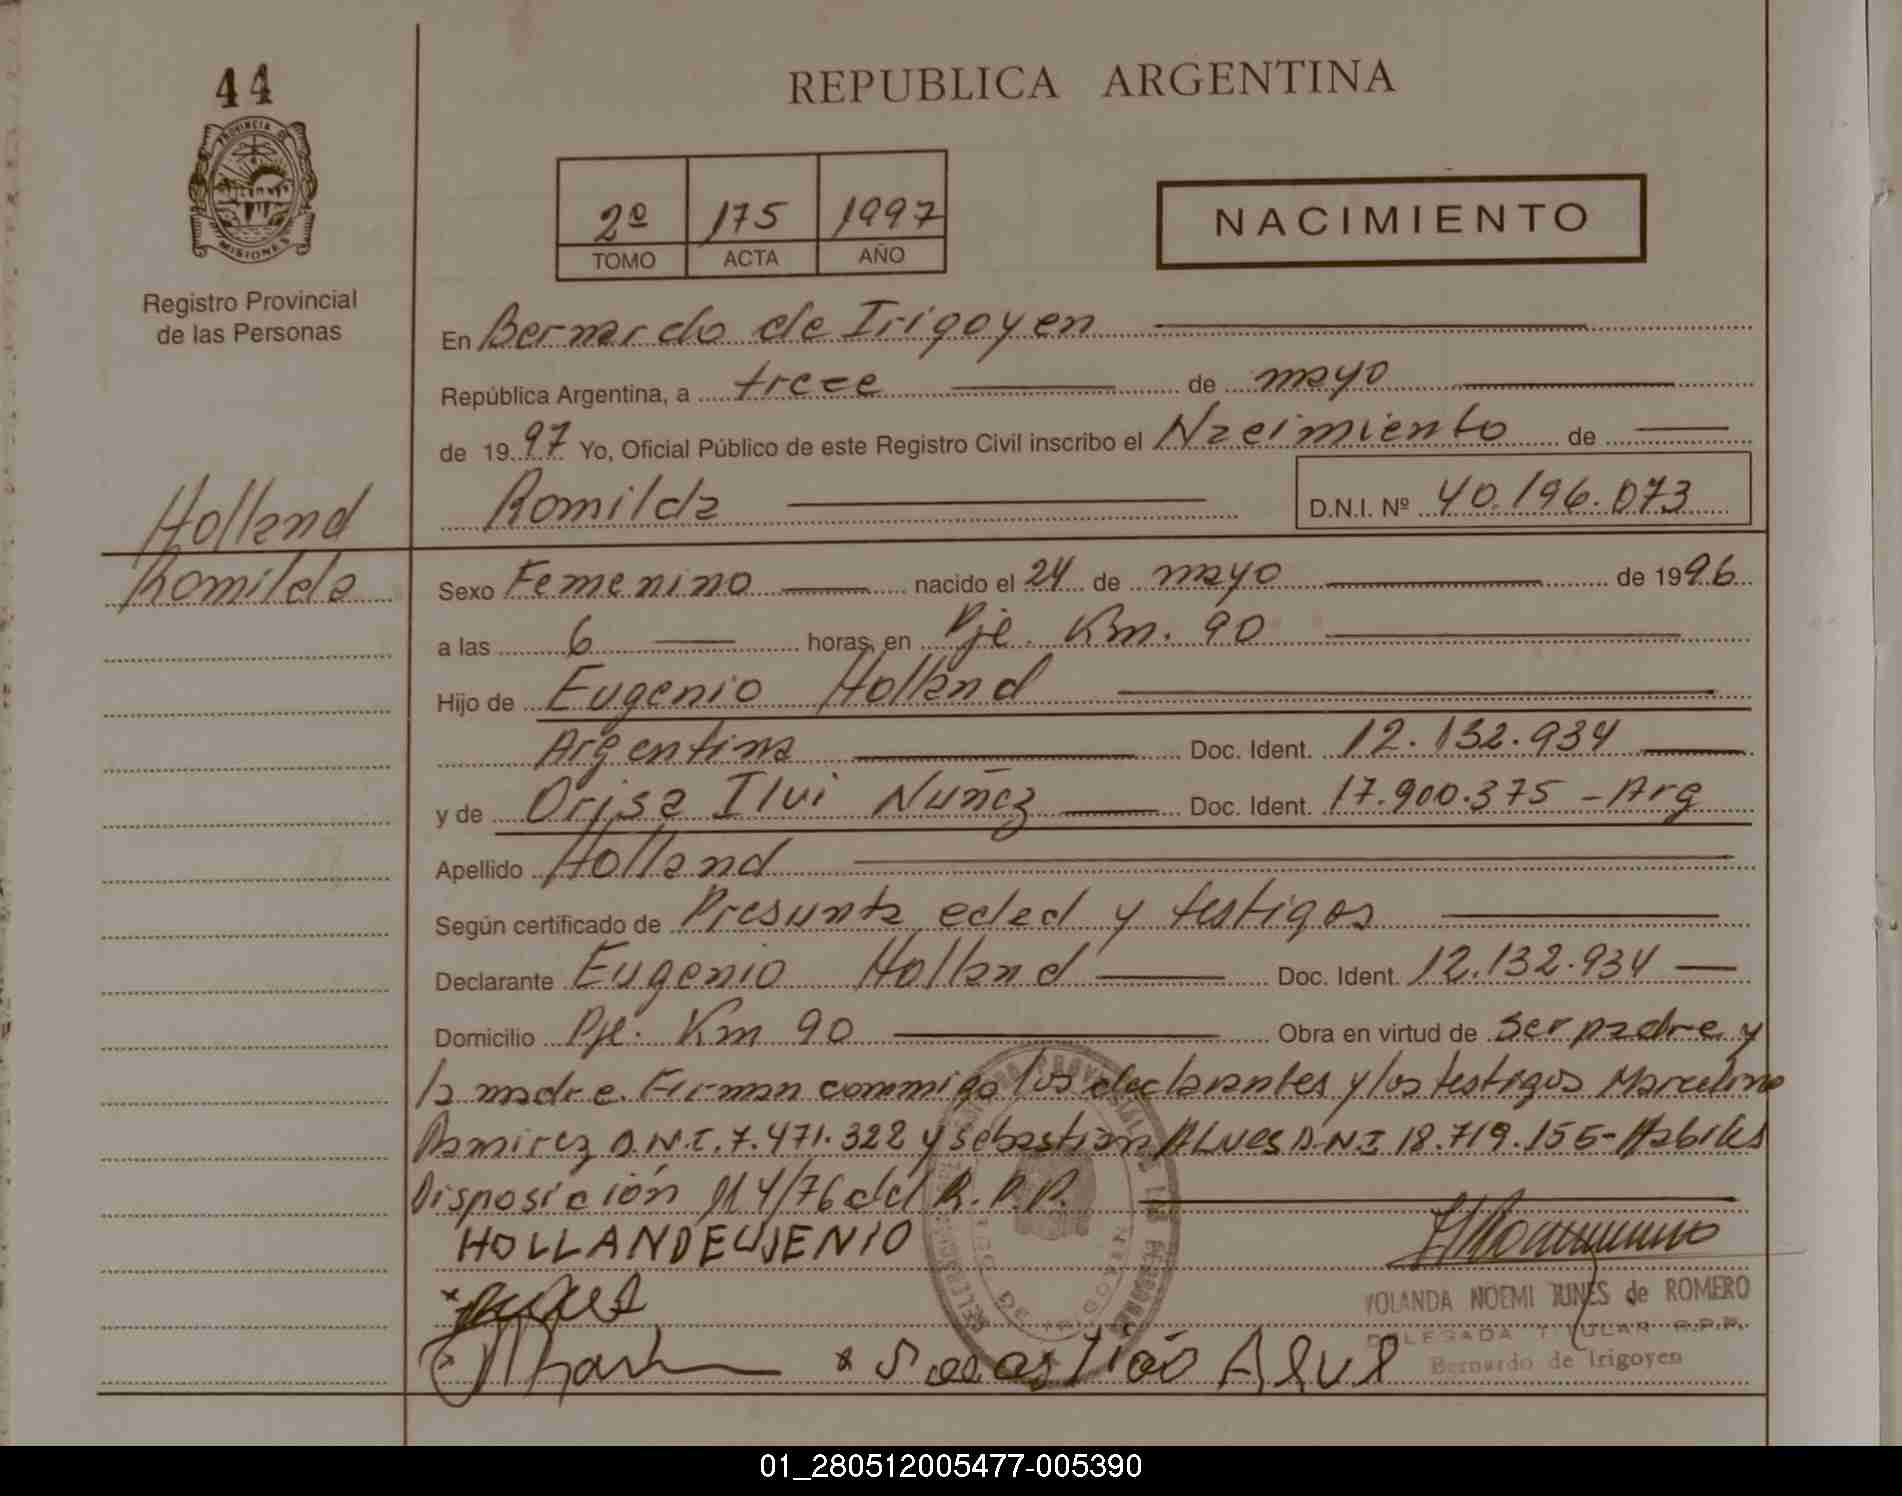 44
REPUBLICA ARGENTINA
PROVINCIA DE
MISIONES
2º 175 1997
TOMO ACTA AÑO
NACIMIENTO
Registro Provincial
de las Personas
En Bernardo de Irigoyen
República Argentina, a trece de mayo
de 1997 Yo, Oficial Público de este Registro Civil inscribo el Nacimiento de
Romilda D.N.I. Nº 40.196.073
Holland
Romilda
Sexo Femenino nacido el 24 de mayo de 1996
a las 6 horas, en Pje. Km. 90
Hijo de Eugenio Holland
Argentina Doc. Ident. 12.132.934
y de Orisa Ilui Nuñez Doc. Ident. 17.900.375 - Arg
Apellido Holland
Según certificado de Presunta edad y testigos
Declarante Eugenio Holland Doc. Ident. 12.132.934
Domicilio Pje. Km 90 Obra en virtud de ser padre y
la madre. Firman conmigo los declarantes y los testigos Marcelino
Ramirez D.N.I. 7.471.322 y sebastian ALves D.N.I 18.719.155- Habiles
Disposición 114/76 del R.P.P.
HOLLANDEUJENIO
YOLANDA NOEMI JUNES de ROMERO
DELEGADA TITULAR R.P.P.
Bernardo de Irigoyen
01_280512005477-005390